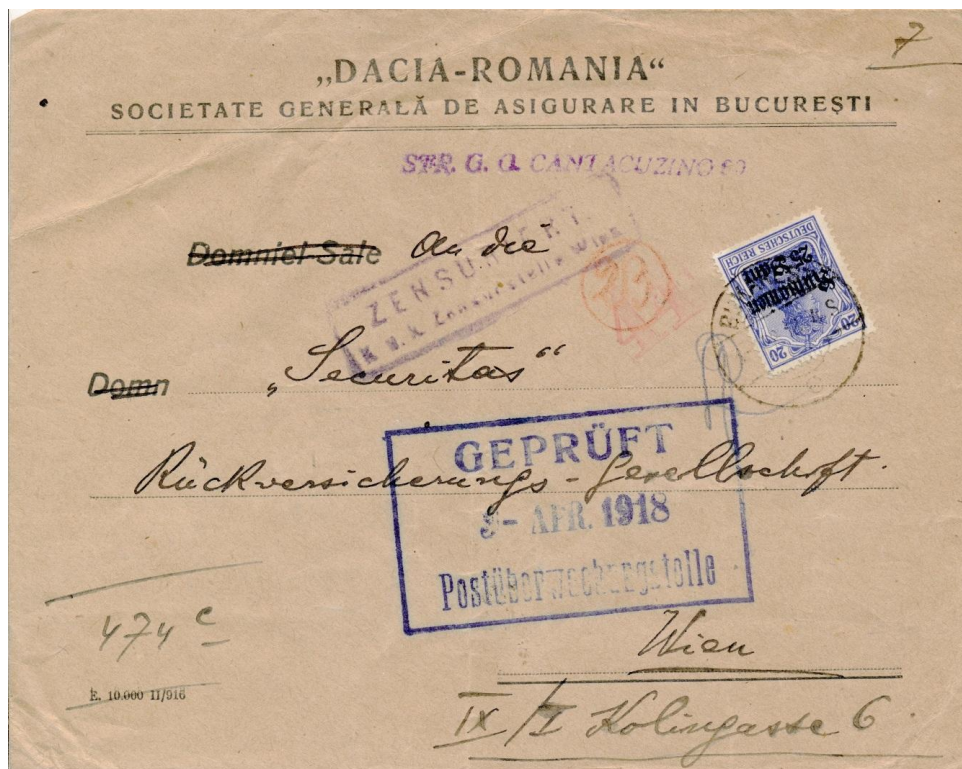 7
„DACIA-ROMANIA“
SOCIETATE GENERALĂ DE ASIGURARE IN BUCUREȘTI
STR. G. G. CANTACUZINO
Domniei-Sale An die
ZENSURIERT.
K. u. K. Zensurstelle Wien
DEUTSCHES REICH
Rumänien
25 Bani
20 20
„Securitas“
Domn
GEPRÜFT
Rückversicherungs-Gesellschaft.
APR. 1918
Postüberwachungstelle
474 c
Wien
E. 10.000 11/916
IX/I Kolingasse 6